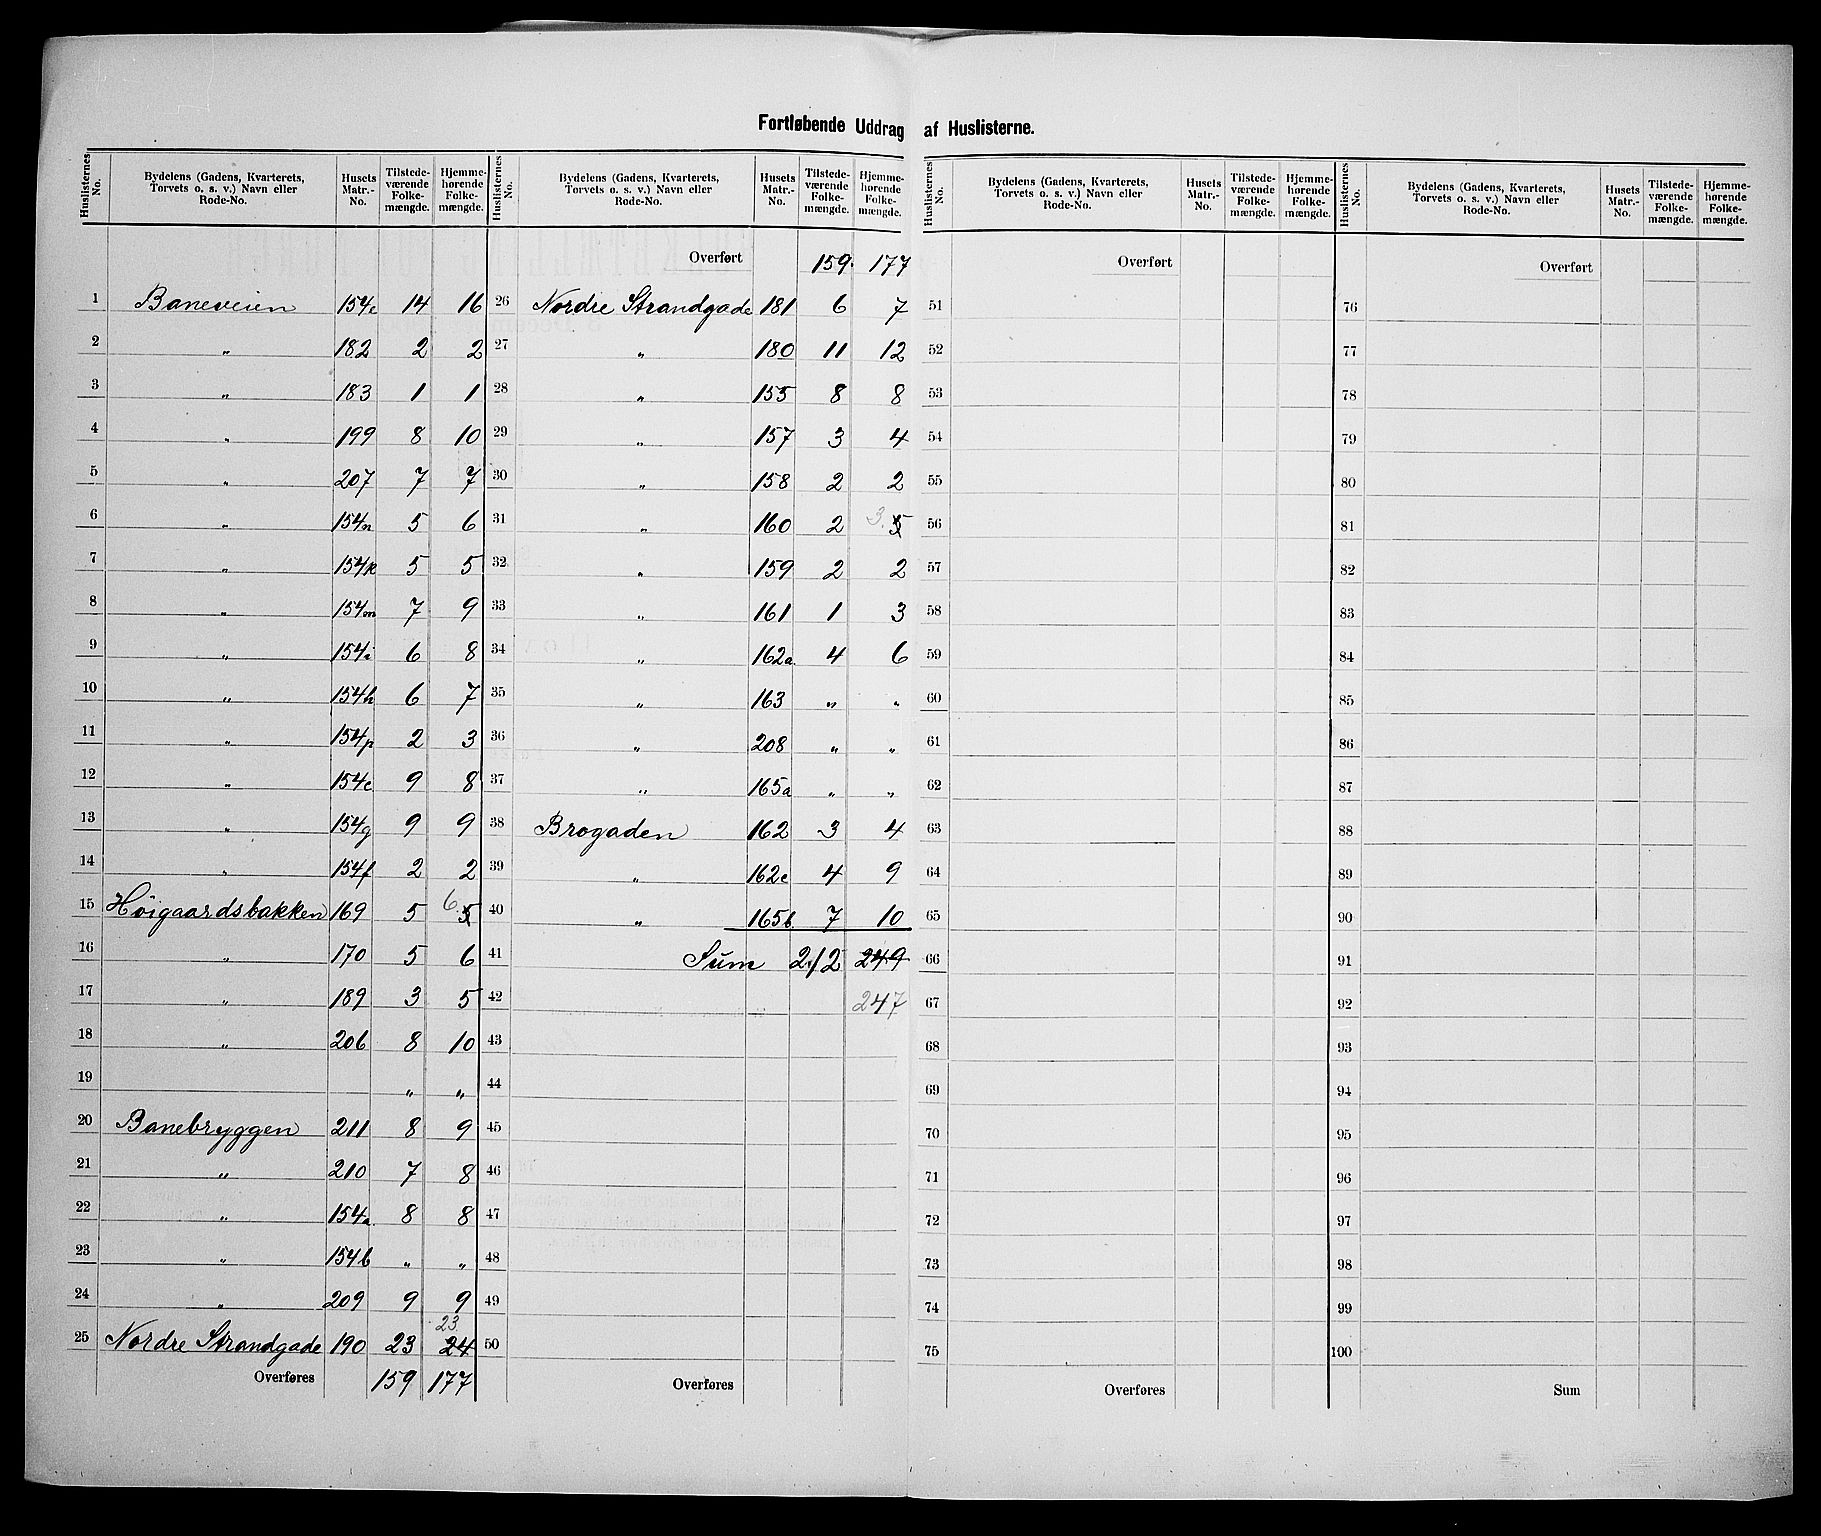 Fortløbende Uddrag af Huslisterne.
Huslisternes No. | Bydelens (Gadens, Kvarterets, Torvets o. s. v.) Navn eller Rode-No. | Husets Matr.-No. | Tilstedeværende Folkemængde. | Hjemmehørende Folkemængde.
1 Baneveien 154e 14 16
2 „ 182 2 2
3 „ 183 1 1
4 „ 199 8 10
5 „ 207 7 7
6 „ 154n 5 6
7 „ 154k 5 5
8 „ 154m 7 9
9 „ 154i 6 8
10 „ 154h 6 7
11 „ 154p 2 3
12 „ 154c 9 8
13 „ 154g 9 9
14 „ 154f 2 2
15 Høigaardsbakken 169 5 6. 5
16 „ 170 5 6
17 „ 189 3 5
18 „ 206 8 10
19 „ „
20 Banebryggen 211 8 9
21 „ 210 7 8
22 „ 154a 8 8
23 „ 154b „ „
24 „ 209 9 9
25 Nordre Strandgade 190 23 23 24
Overføres 159 177
Huslisternes No. | Bydelens (Gadens, Kvarterets, Torvets o. s. v.) Navn eller Rode-No. | Husets Matr.-No. | Tilstedeværende Folkemængde. | Hjemmehørende Folkemængde.
Overført 159 177
26 Nordre Strandgade 181 6 7
27 „ 180 11 12
28 „ 155 8 8
29 „ 157 3 4
30 „ 158 2 2
31 „ 160 2 3. 5
32 „ 159 2 2
33 „ 161 1 3
34 „ 162a 4 6
35 „ 163 „ „
36 „ 208 „ „
37 „ 165a „ „
38 Brogaden 162 3 4
39 „ 162c 4 9
40 „ 165b 7 10
41 Sum 212 249
42 247
43
44
45
46
47
48
49
50
Overføres
Huslisternes No. | Bydelens (Gadens, Kvarterets, Torvets o. s. v.) Navn eller Rode-No. | Husets Matr.-No. | Tilstedeværende Folkemængde. | Hjemmehørende Folkemængde.
Overført
51
52
53
54
55
56
57
58
59
60
61
62
63
64
65
66
67
68
69
70
71
72
73
74
75
Overføres
Huslisternes No. | Bydelens (Gadens, Kvarterets, Torvets o. s. v.) Navn eller Rode-No. | Husets Matr.-No. | Tilstedeværende Folkemængde. | Hjemmehørende Folkemængde.
Overført
76
77
78
79
80
81
82
83
84
85
86
87
88
89
90
91
92
93
94
95
96
97
98
99
100
Sum